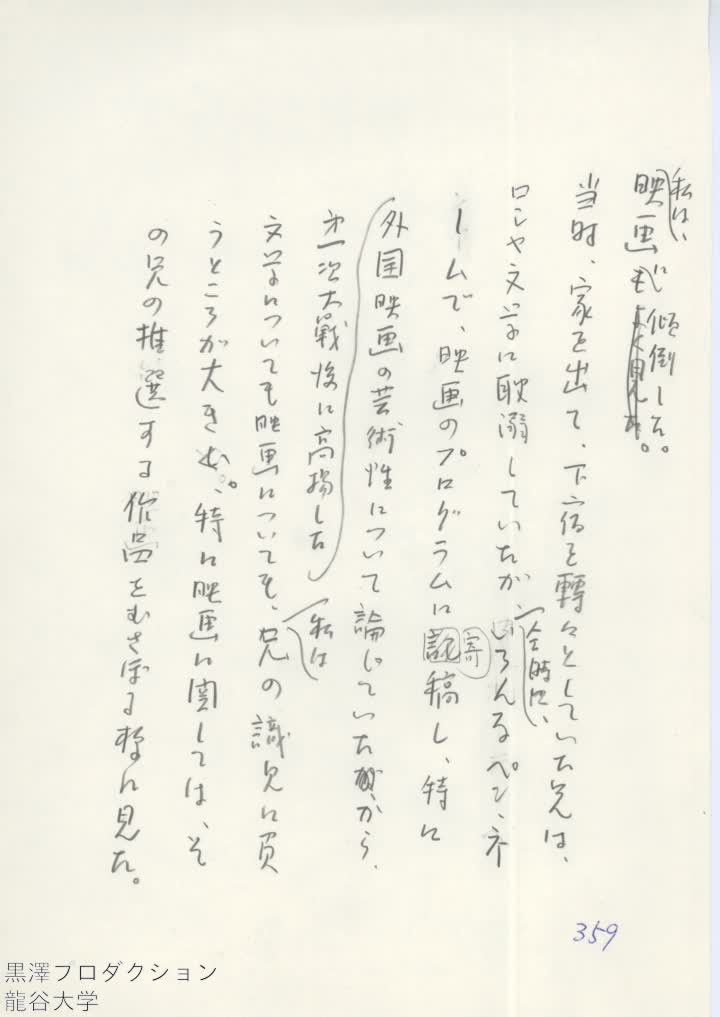 私は、
映画に傾倒した。
もよく見た。
当時、家を出て、下宿を轉々としていた兄は、
ロシヤ文学に耽溺していたが
仝時に、
いろんなペン・ネ
ームで、映画のプログラムに
寄稿し、特に
外国映画の芸術性について論じていた
から、
第一次大戰後に高揚した
私は
文学についても映画についても、兄の識見に負
うところが大きい。特に映画に関しては、そ
の兄の推選する作品をむさぼる様に見た。
359
黒澤プロダクション
龍谷大学